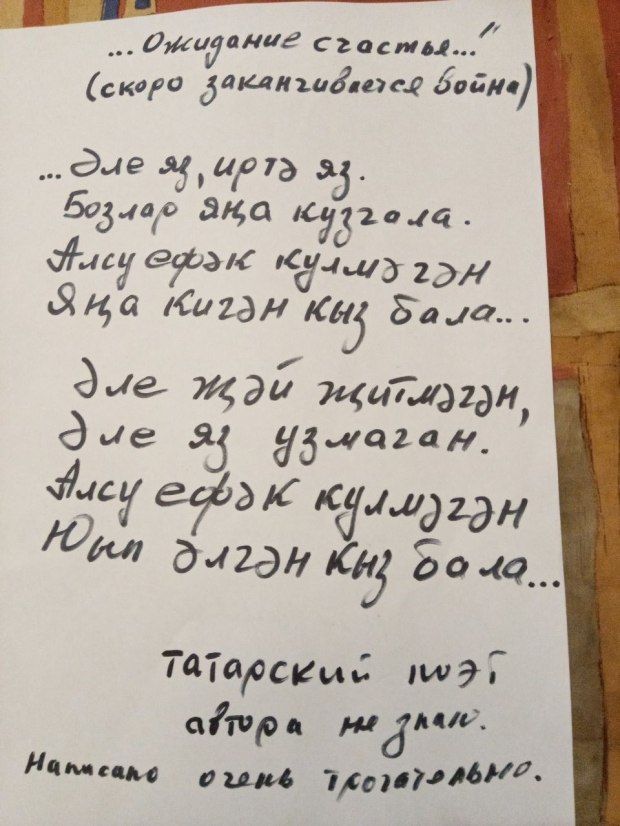 ...Ожидание счастья..."
(скоро заканчивается война)
...Әле яз, иртә яз.
Бозлар яңа кузгала.
Алсу ефәк кулмәгән
Яңа кигән кыз бала...
Әле җәй җитмәгән,
Әле яз узмаган.
Алсу ефәк кулмәгән
Юып әлгән кыз бала...
татарский поэт
автора не знаю.
Написано очень трогательно.